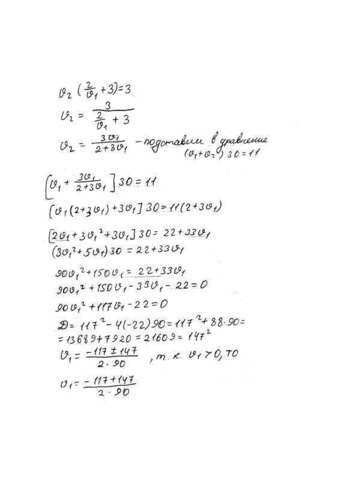 υ₂ (2/υ₁ + 3) = 3
υ₂ = 3/(2/υ₁ + 3)
υ₂ = 3υ₁/(2+3υ₁) - подставим в уравнение
(υ₁+υ₂) 30 = 11
[υ₁ + 3υ₁/(2+3υ₁)] 30 = 11
[υ₁(2+3υ₁)+3υ₁] 30 = 11(2+3υ₁)
[2υ₁+3υ₁²+3υ₁] 30 = 22+33υ₁
(3υ₁²+5υ₁) 30 = 22+33υ₁
90υ₁²+150υ₁ = 22+33υ₁
90υ₁²+150υ₁-33υ₁-22=0
90υ₁²+117υ₁-22=0
D = 117²-4(-22)90=117²+88·90=
=13689+7920=21609=147²
υ₁ = (-117±147)/(2·90), т.к. υ₁>0, то
υ₁ = (-117+147)/(2·90)